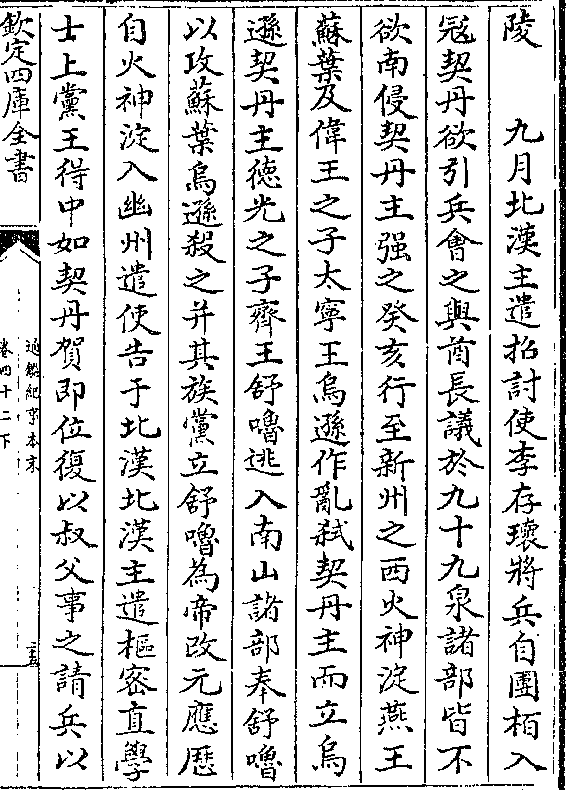 陵　　九月北漢主遣招討使李存瓌將兵自團栢入
冦契丹欲引兵會之與酋長議於九十九泉諸部皆不
欲南侵契丹主强之癸亥行至新州之西火神淀燕王
蘇葉及偉王之子太寧王烏遜作亂弑契丹主而立烏
遜契丹主德光之子齊王舒嚕逃入南山諸部奉舒嚕
以攻蘇葉烏遜殺之并其族黨立舒嚕為帝改元應歴
自火神淀入幽州遣使告于北漢北漢主遣樞密直學
士上黨王得中如契丹賀即位復以叔父事之請兵以
欽定四庫全書
通鑑紀事本末
卷四十二下